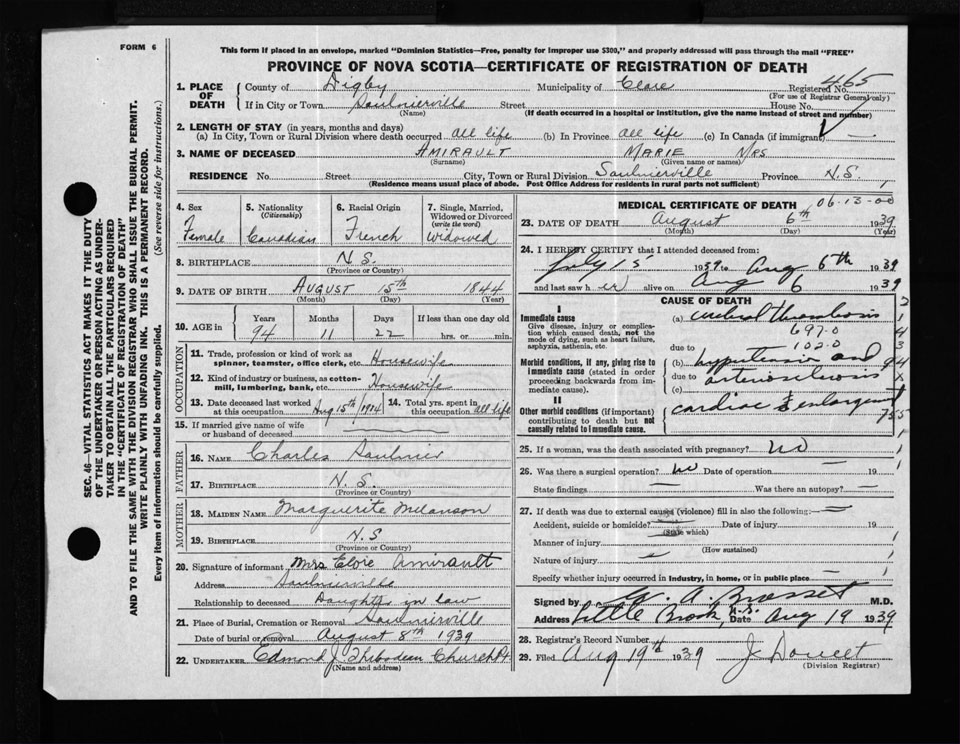 FORM 6
This form if placed in an envelope, marked "Dominion Statistics—Free, penalty for improper use $300," and properly addressed will pass through the mail "FREE"
PROVINCE OF NOVA SCOTIA—CERTIFICATE OF REGISTRATION OF DEATH
465
1. PLACE OF DEATH County of Digby Municipality of Clare Registered No.
(For use of Registrar General only)
If in City or Town Saulnierville Street House No.
(Name) (If death occurred in a hospital or institution, give the name instead of street and number)
2. LENGTH OF STAY (in years, months and days)
(a) In City, Town or Rural Division where death occurred all life (b) In Province all life (c) In Canada (if immigrant) —
3. NAME OF DECEASED AMIRAULT MARIE MRS
(Surname) (Given name or names)
RESIDENCE No. Street City, Town or Rural Division Saulnierville Province N.S.
(Residence means usual place of abode. Post Office Address for residents in rural parts not sufficient)
4. Sex Female
5. Nationality (Citizenship) Canadian
6. Racial Origin French
7. Single, Married, Widowed or Divorced (write the word) Widowed
8. BIRTHPLACE N.S.
(Province or Country)
9. DATE OF BIRTH AUGUST 15th 1844
(Month) (Day) (Year)
10. AGE in Years Months Days If less than one day old
94 11 22 hrs. or min.
OCCUPATION
11. Trade, profession or kind of work as spinner, teamster, office clerk, etc. Housewife
12. Kind of industry or business, as cotton-mill, lumbering, bank, etc. Housewife
13. Date deceased last worked at this occupation Aug 15th 1914 14. Total yrs. spent in this occupation all life
15. If married give name of wife or husband of deceased
FATHER
16. NAME Charles Saulnier
17. BIRTHPLACE N.S.
(Province or Country)
MOTHER
18. MAIDEN NAME Marguerite Melanson
19. BIRTHPLACE N.S
(Province or Country)
20. Signature of informant Mrs Eloie Amirault
Address Saulnierville
Relationship to deceased Daughter in law
21. Place of Burial, Cremation or Removal Saulnierville
Date of burial or removal August 8th 1939
22. UNDERTAKER Edmond J. Thibodeau Church Pt
(Name and address)
MEDICAL CERTIFICATE OF DEATH 06-13-00
23. DATE OF DEATH August 6th 1939
(Month) (Day) (Year)
24. I HEREBY CERTIFY that I attended deceased from:
July 15 1939 to Aug 6th 1939
and last saw her alive on Aug 6 1939
CAUSE OF DEATH
I
Immediate cause
Give disease, injury or complication which caused death, not the mode of dying, such as heart failure, asphyxia, asthenia, etc.
(a) cerebral thrombosis
697-0
due to 102.0
Morbid conditions, if any, giving rise to immediate cause (stated in order proceeding backwards from immediate cause).
(b) hypertension and
due to arteriosclerosis
(c)
II
Other morbid conditions (if important) contributing to death but not causally related to immediate cause.
cardiac enlargement
25. If a woman, was the death associated with pregnancy? no
26. Was there a surgical operation? no Date of operation — 19
State findings — Was there an autopsy? —
27. If death was due to external causes (violence) fill in also the following:—
Accident, suicide or homicide? Date of injury 19
(State which)
Manner of injury —
(How sustained)
Nature of injury —
Specify whether injury occurred in industry, in home, or in public place —
Signed by A. Brasset M.D.
Address Little Brook, N.S. Date Aug 19 1939
28. Registrar's Record Number
29. Filed Aug 19th 1939 J Doucet
(Division Registrar)
SEC. 46—VITAL STATISTICS ACT MAKES IT THE DUTY
OF THE UNDERTAKER OR PERSON ACTING AS UNDER-
TAKER TO OBTAIN ALL THE PARTICULARS REQUIRED
IN THE "CERTIFICATE OF REGISTRATION OF DEATH"
AND TO FILE THE SAME WITH THE DIVISION REGISTRAR WHO SHALL ISSUE THE BURIAL PERMIT.
WRITE PLAINLY WITH UNFADING INK. THIS IS A PERMANENT RECORD.
Every item of information should be carefully supplied. (See reverse side for instructions.)